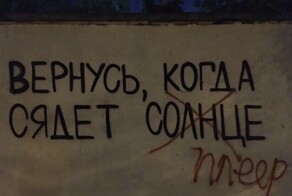 ВЕРНУСЬ, КОГДА
СЯДЕТ СОЛНЦЕ
плеер